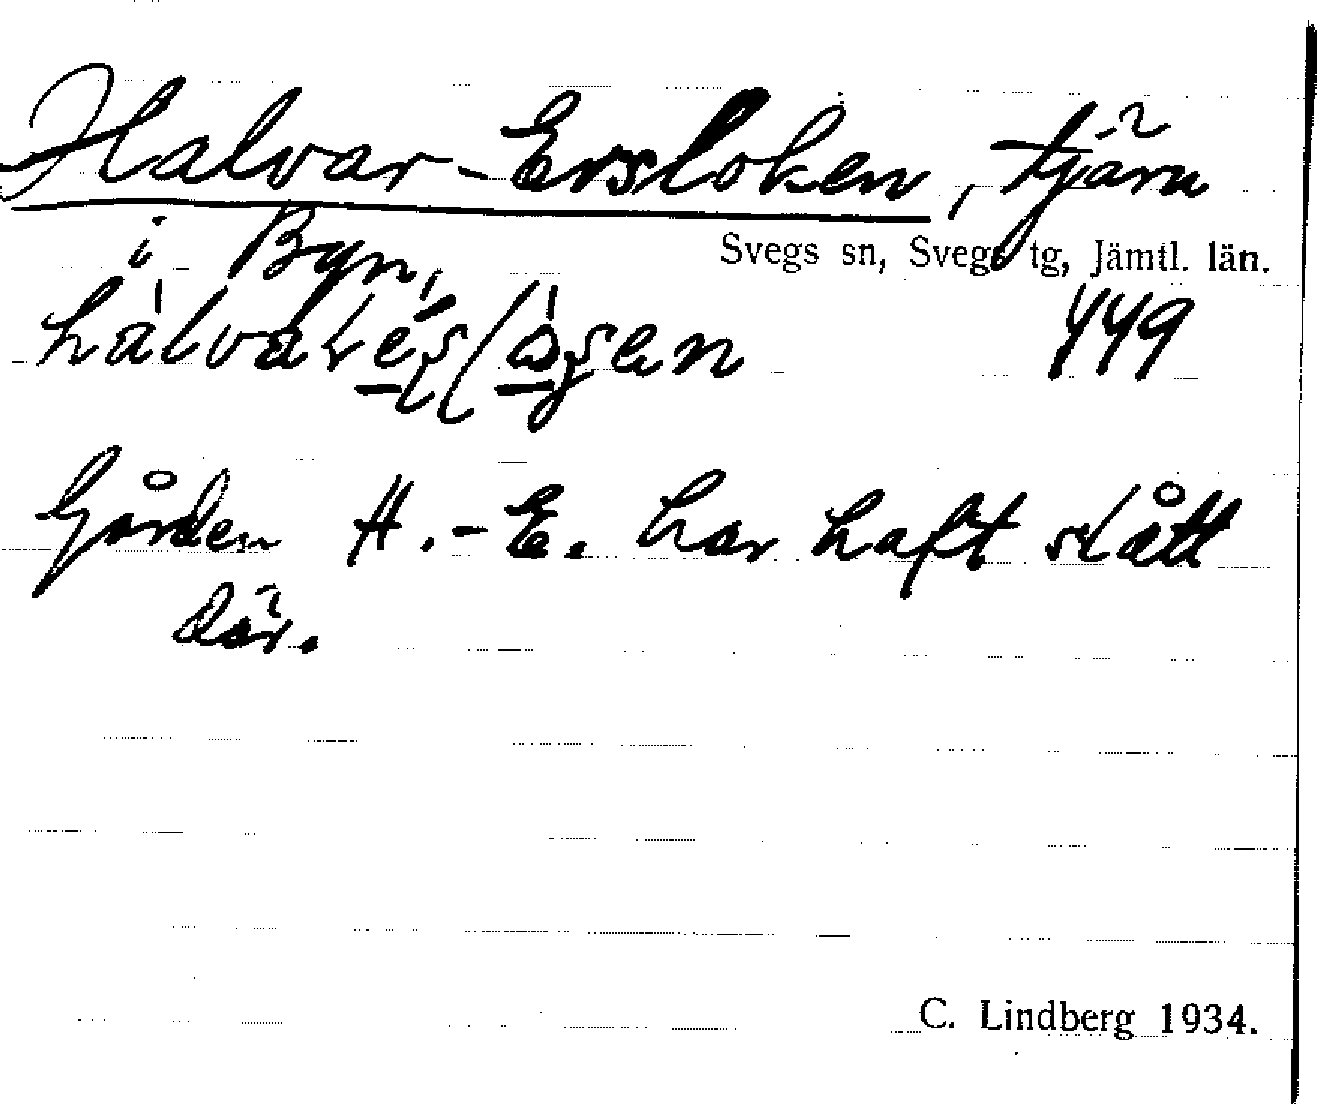 Halvar-Ersloken, tjärn
i Byn,
Svegs sn, Svegs tg, Jämtl. län.
449
Gården H.-E. har haft slått
där.
C. Lindberg 1934.